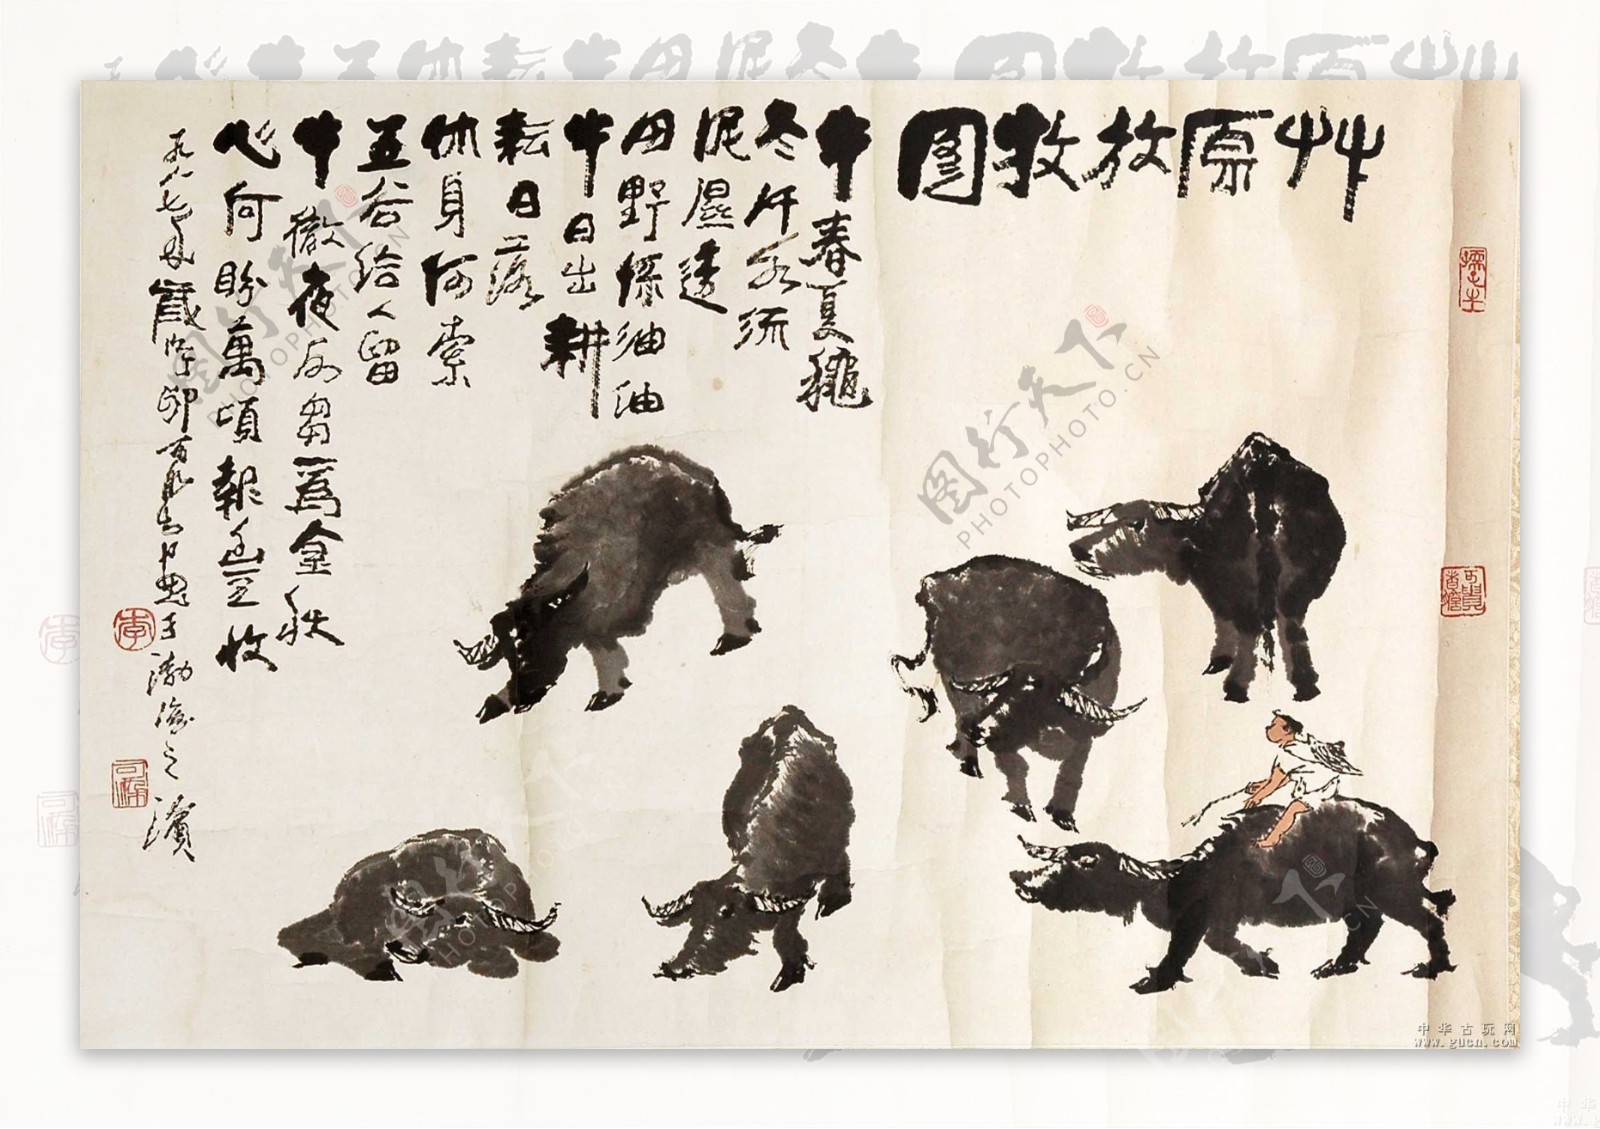 艸原放牧圖
牛春夏龝
冬汗水流
泥濕透
田野綠油油
牛日出耕
耘日落
休身何索
五谷給人留
牛徹夜反芻為金秋
心何盼萬頃報豐收
一九八七年歲次丁卯
渤海之濱
图行天下
PHOTOPHOTO.CN
中华古玩网
www.gucn.com